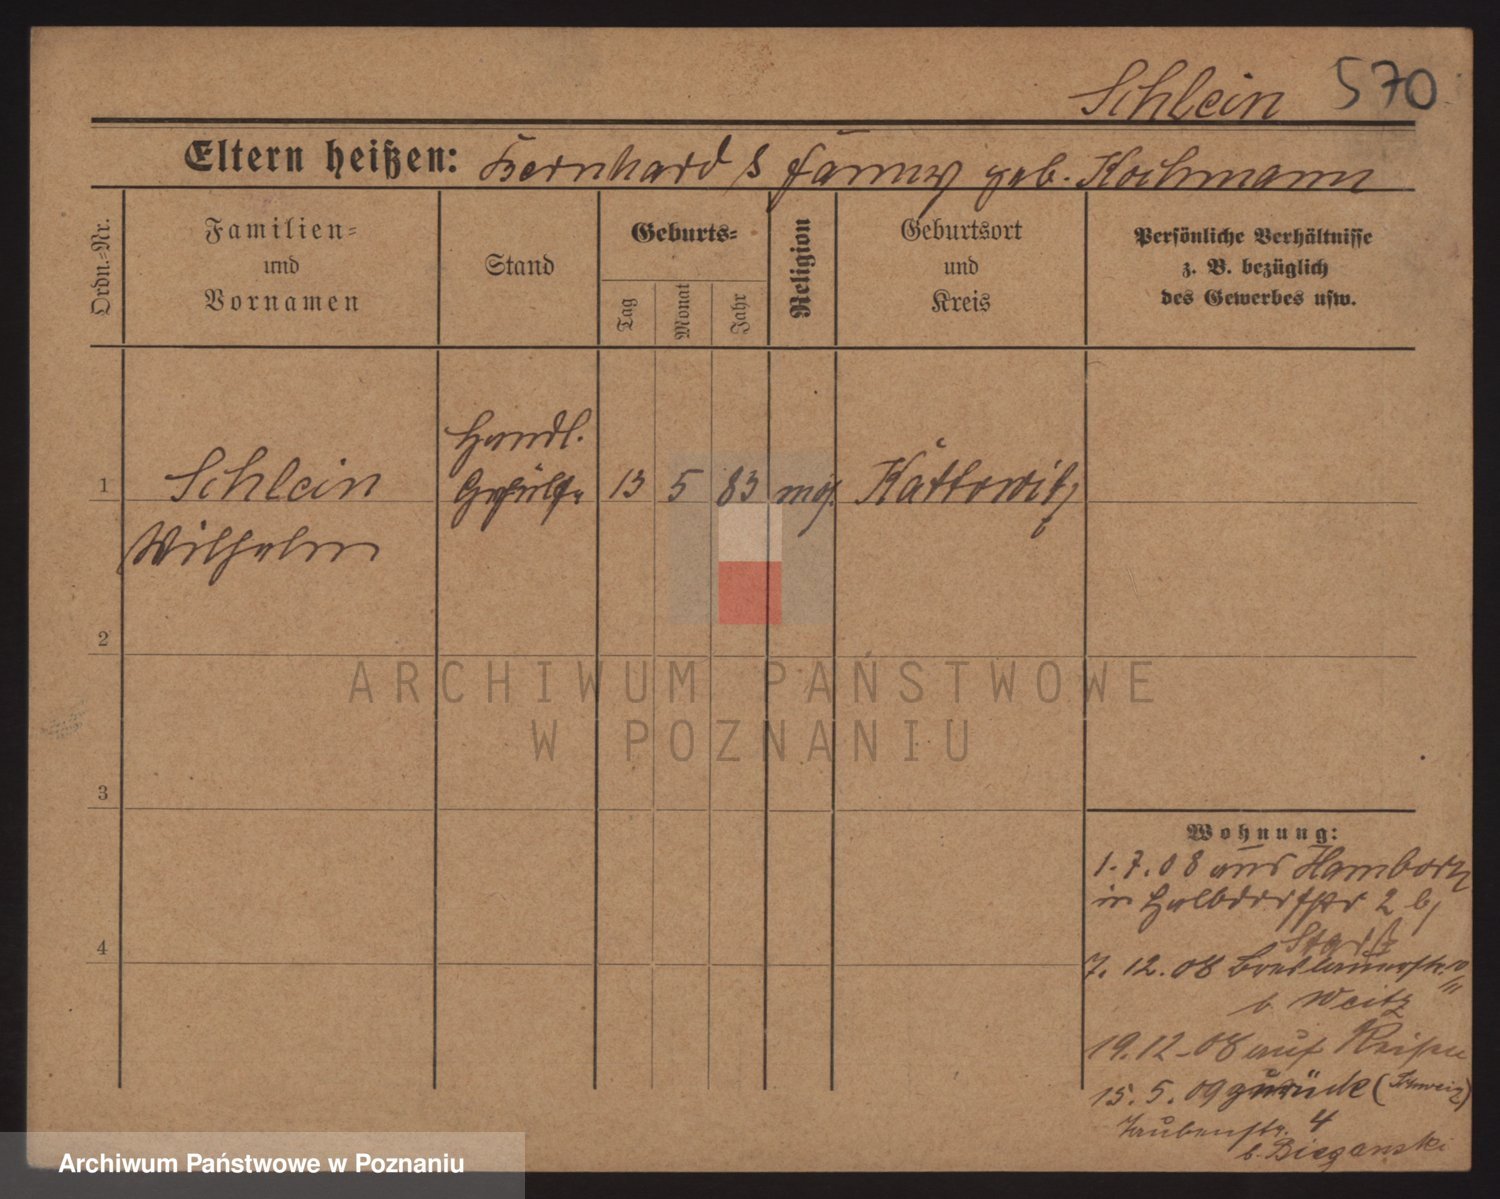 Schlein 570
Eltern heißen: Bernhard & Fanny geb. Kochmann
Ordn.-Nr.
Familien-
und
Vornamen
Stand
Geburts-
Tag
Monat
Jahr
Religion
Geburtsort
und
Kreis
Persönliche Verhältnisse
z. B. bezüglich
des Gewerbes usw.
1 Schlein Handl. Gehülfe 13 5 83 mos. Kattowitz
Wilhelm
2
3
4
Wohnung:
1.7.08 aus
in Halbdorfstr 2 b/
7.12.08 Breslauerstr.
b Weitz
19.12.08 auf Reisen
15.5.09 zurück (Schweiz)
Taubenstr. 4
b. Bieganski
ARCHIWUM PAŃSTWOWE
W POZNANIU
Archiwum Państwowe w Poznaniu